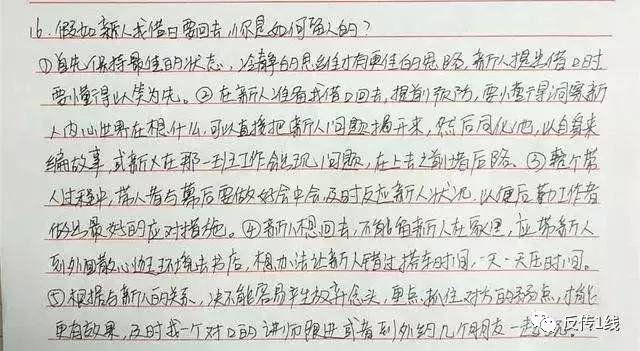 16、假如新人找借口要回去,你是如何留人的？
①首先保持最佳的状态,冷静的思维才有更佳的思路,新人提出借口时
要懂得以笑为先。②在新人准备找借口回去,提前预防,要懂得洞察新
人内心世界在想什么,可以直接把新人问题揭开来,然后同化他,以自身来
编故事,或新人在那一班工作会出现问题,在上去之前堵后路。③整个带
人过程中,带人者与幕后要做好会中会,及时反应新人状况,以便后勤工作者
做出最好的应对措施。④新人想回去,不能留新人在家里,应带新人
到外面散心 环境去书店,想办法让新人错过搭车时间,一天一天压时间。
⑤根据与新人的关系,决不能容易产生放弃念头,重点抓住对方的弱点,才能
更有效果,及时找一个对口的讲师跟进或者到外约几个朋友一起
反传1线